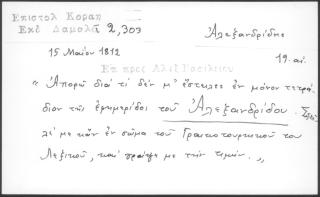 Επιστολ Κοραη
Εκδ Δαμαλά 2,303
Ἀλεξανδρίδης
15 Μαίου 1812
19. αἰ.
Επ προς Αλεξ Βασιλειου
« Ἀπορῶ διὰ τί δὲν μ' ἔστειλες ἓν μόνον τετρά-
διον τῆς ἐφημερίδος τοῦ Ἀλεξανδρίδου. Στεῖ-
λέ με κἂν ἓν σῶμα τοῦ Γραικοτουρκικοῦ του
Λεξικοῦ, καὶ γράψε με τὴν τιμήν. »